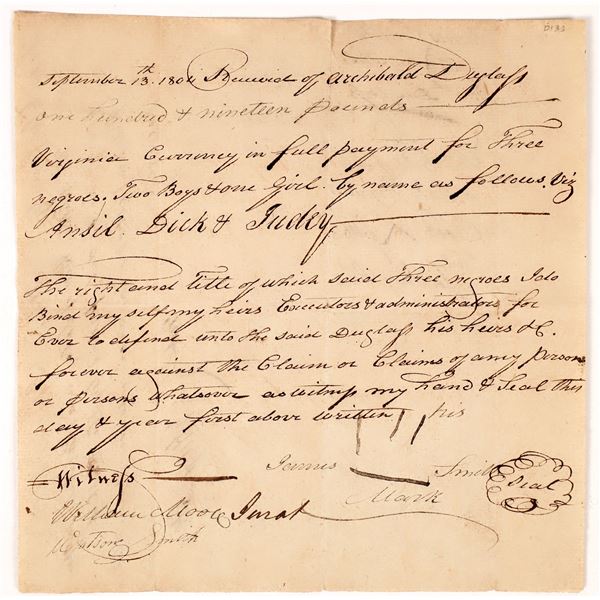 September 13th 1804 Received of Archibald Duglass
one hundred & nineteen pounds
Virginia Currency in full payment for Three
negroes. Two Boys & one Girl. by name as follows. Viz
Ansil. Dick & Judey
The right and title of which said Three negroes I do
Bind my self my heirs Executors & administrators for
Ever to defend unto the said Duglass his heirs &C.
forever against the Claim or Claims of any person
or persons whatsover as witness my hand & Seal this
day & year first above written
his
James Smith Seal
Mark
Witness
William Moore Jurat
Smith